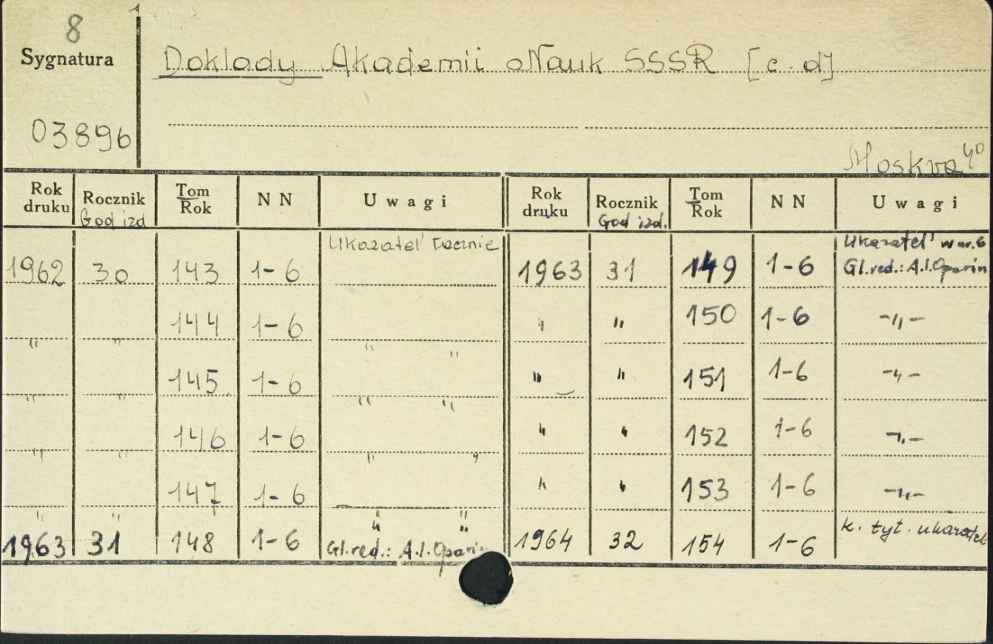 8
Sygnatura
03896
Doklady Akademii Nauk SSSR [c. d]
Moskva
40
Rok druku | Rocznik God izd | Tom Rok | NN | Uwagi | Rok druku | Rocznik God izd. | Tom Rok | NN | Uwagi
1962 | 30 | 143 | 1-6 | Ukazatel' rocznie | 1963 | 31 | 149 | 1-6 | Ukazatel' w nr. 6 Gl. red.: A.I. Oparin
" | " | 144 | 1-6 | " " | " | " | 150 | 1-6 | -"-
" | " | 145 | 1-6 | " " | " | " | 151 | 1-6 | -"-
" | " | 146 | 1-6 | " " | " | " | 152 | 1-6 | -"-
" | " | 147 | 1-6 | " " | " | " | 153 | 1-6 | -"-
1963 | 31 | 148 | 1-6 | Gl. red.: A.I. Oparin | 1964 | 32 | 154 | 1-6 | k. tyt. ukazatel